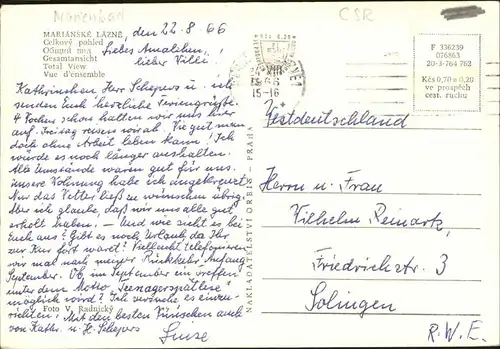 Marienbad
ČSR
den 22.8.66
MARIÁNSKÉ LÁZNĚ
Celkový pohled
Общий вид
Gesamtansicht
Total View
Vue d'ensemble
Liebes Amalchen!
lieber Willi!
Kathrinchen Herr Schepers u. ich
senden Euch herzliche Feriengrüße.
4 Wochen schon halten wir uns hier
auf. Freitag reisen wir ab. Wie gut man
doch ohne Arbeit leben kann! Ich
würde es noch länger aushalten.
Alle Umstände waren gut für uns.
unsere Wohnung habe ich angekreuzt.
Nur das Wetter ließ zu wünschen übrig.
Aber ich glaube, daß wir uns alle gut
erholt haben. – Und wie sieht es bei
Euch aus? Gibt es noch Urlaub, da Ihr
zur Kur fort wart? Vielleicht telefonieren
wir mal nach meiner Rückkehr Anfang
September. Ob im September ein Treffen
unter dem Motto "Teenagerspätlese"
möglich wird? Ich versuche es einzu-
richten! Mit den besten Wünschen auch
von Kathr. u. H. Schepers
Foto V. Radnický
NAKLADATELSTVÍ ORBIS - PRAHA
VIII
66
15-16
F 336239
076863
20-3-764 762
Kčs 0,70 + 0,20
ve prospěch
cest. ruchu
Westdeutschland
Herrn u. Frau
Wilhelm Remark,
Friedrichstr. 3
Solingen
R.W.E.